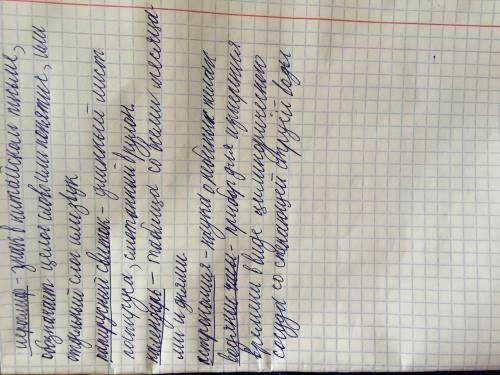 иероглиф - знак в китайском письме,
обозначает целое слово или понятие, или
отдельный слог или звук
папирусный свиток - длинный лист
папируса, смотанный в рулон.
календарь - таблица со всеми месяца-
ми и днями
астрономия - наука о небесных телах
водяные часы - прибор для измерения
времени в виде цилиндрического
сосуда со стекающей струёй воды